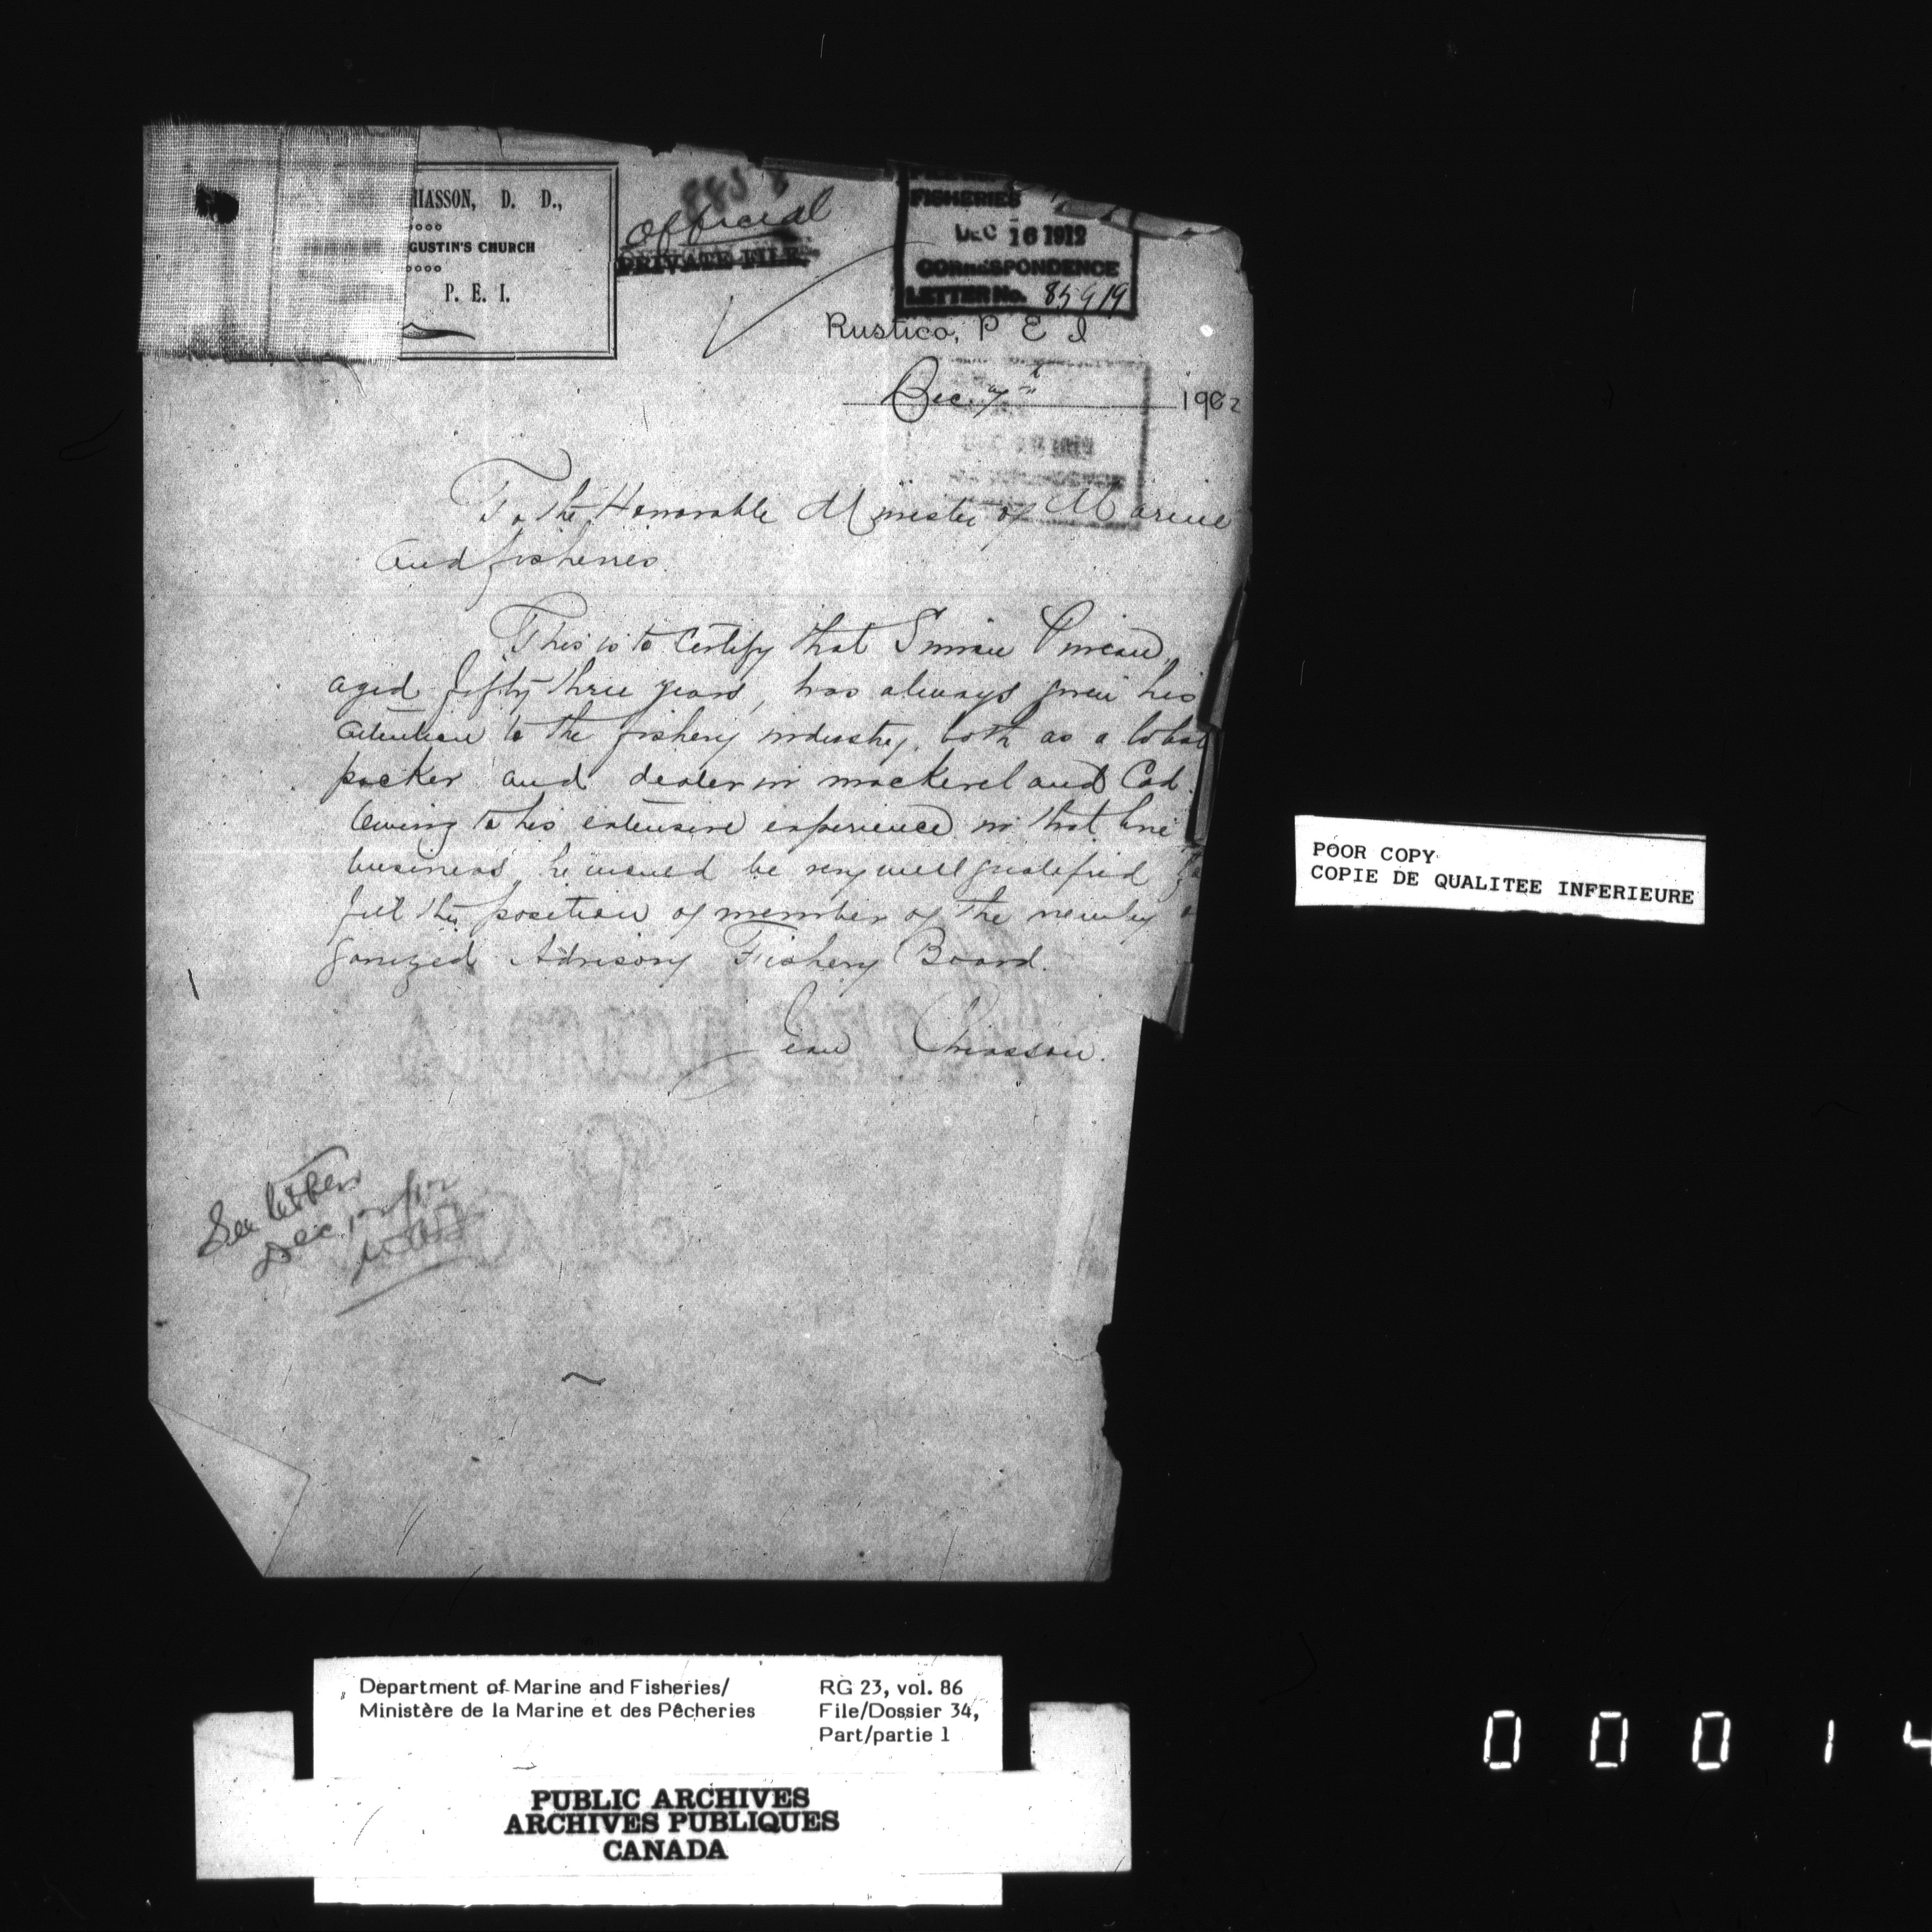 HIASSON, D. D.,
GUSTIN'S CHURCH
P. E. I.
Official
PRIVATE FILE
FISHERIES
DEC 16 1912
CORRESPONDENCE
LETTER No. 85919
Rustico, P E I
Dec. 7th 1902
To the Honorable Minister of Marine
and fisheries.
This is to certify that
aged fifty three years, has always given his
attention to the fishery industry, both as a lobst
packer and dealer in mackerel and Cod.
Owing to his extensive experience in that line
business, he would be very well qualified to
fill the position of member of the newly o
ganized Advisory Fishery Board.
Jean Chiasson.
See letter
Dec 12/12
POOR COPY
COPIE DE QUALITEE INFERIEURE
Department of Marine and Fisheries/
Ministère de la Marine et des Pêcheries
RG 23, vol. 86
File/Dossier 34,
Part/partie 1
PUBLIC ARCHIVES
ARCHIVES PUBLIQUES
CANADA
0 0 0 1 4